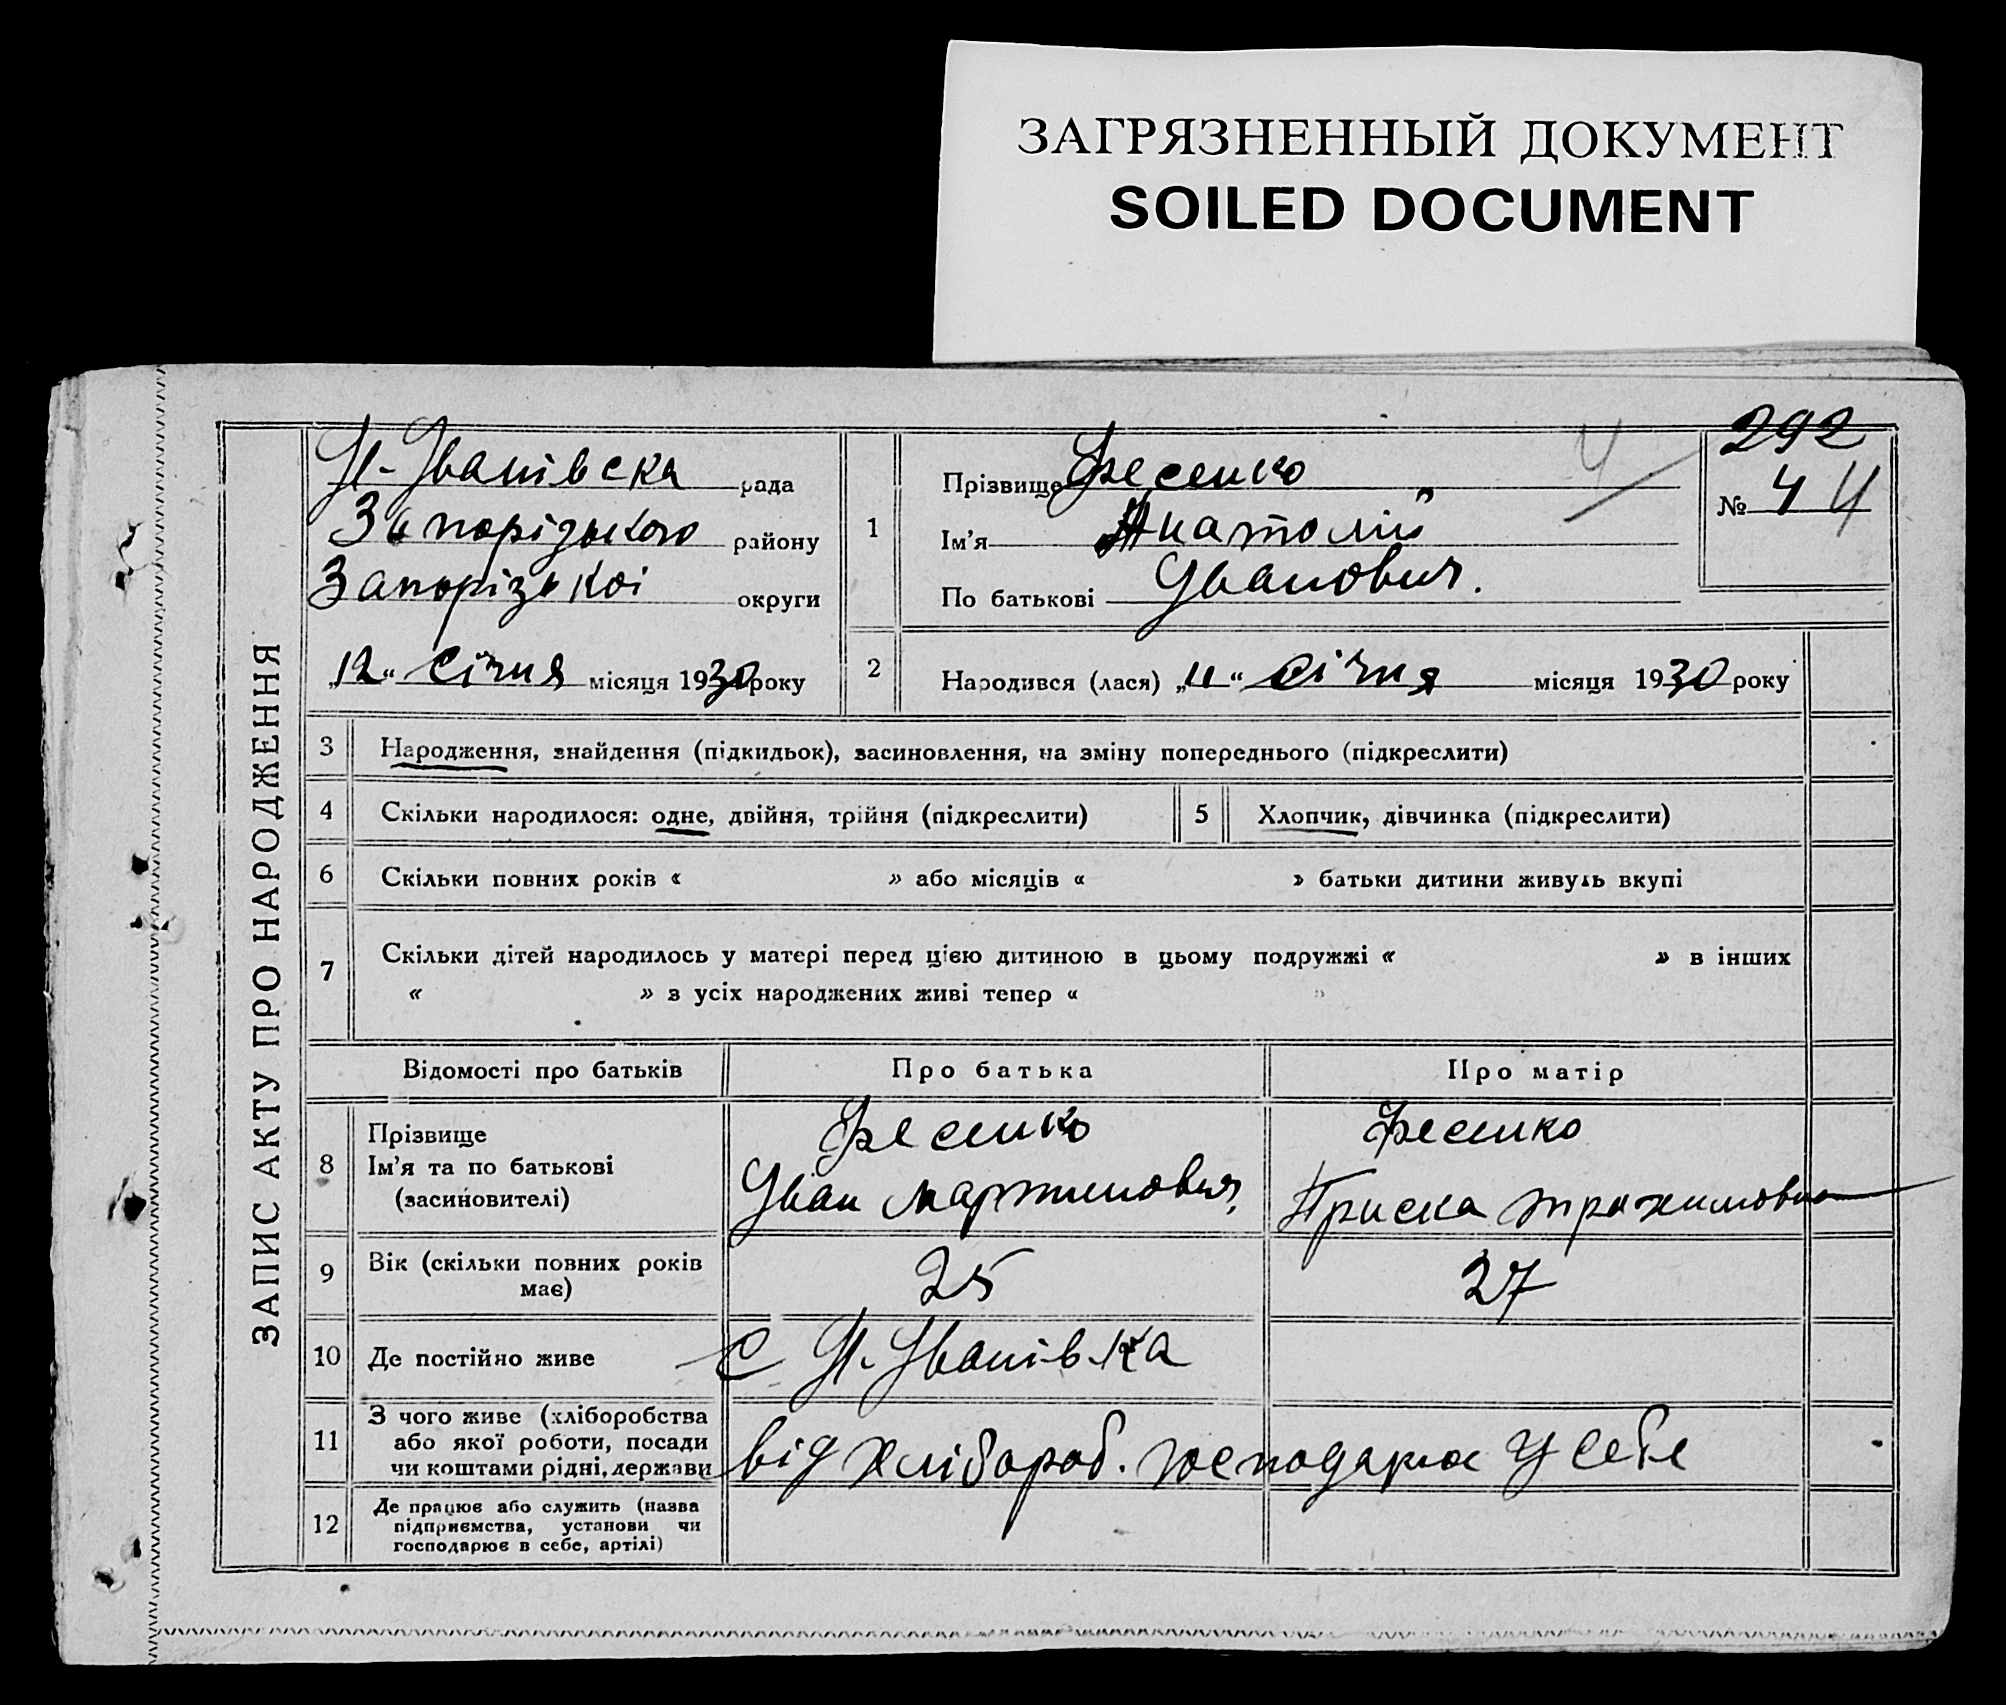 ЗАГРЯЗНЕННЫЙ ДОКУМЕНТ
SOILED DOCUMENT
292
ЗАПИС АКТУ ПРО НАРОДЖЕННЯ
Н-Іванівска рада
Запорізького району
Запорізькоі округи
„12“ січня місяця 1930 року
1
Прізвище Фесенко 4
Ім'я Анатолій
По батькові Іванович.
№ 4 4
2 Народився (лася) „11“ січня місяця 1930 року
3 Народження, знайдення (підкидьок), засиновлення, на зміну попереднього (підкреслити)
4 Скільки народилося: одне, двійня, трійня (підкреслити)
5 Хлопчик, дівчинка (підкреслити)
6 Скільки повних років « » або місяців « » батьки дитини живуть вкупі
7 Скільки дітей народилось у матері перед цією дитиною в цьому подружжі « » в інших
« » з усіх народжених живі тепер « »
Відомості про батьків Про батька Про матір
8 Прізвище Фесенко Фесенко
Ім'я та по батькові Іван Мартинович, Приска Трохимовна
(засиновителі)
9 Вік (скільки повних років має) 25 27
10 Де постійно живе с Н-Іванівка
11 З чого живе (хліборобства
або якої роботи, посади
чи коштами рідні, держави
від хлібороб. господарює У себе
12 Де працює або служить (назва
підприємства, установи чи
господарює в себе, артілі)